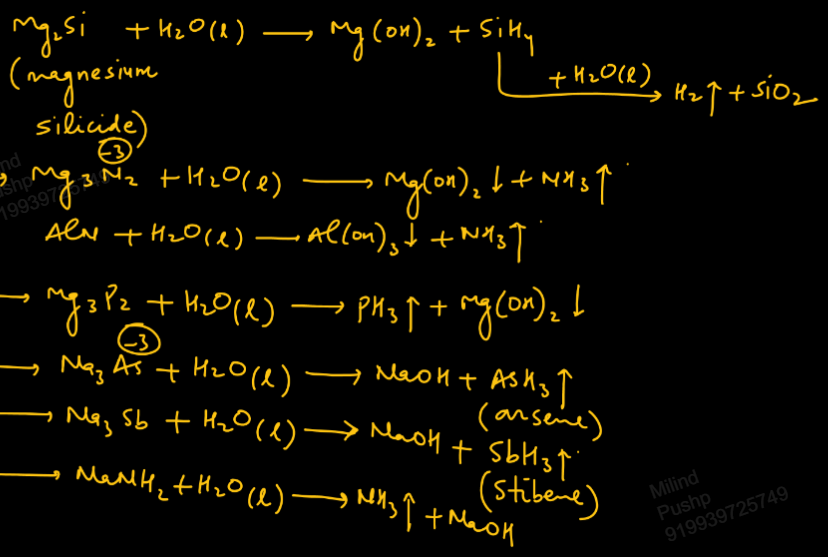 Mg₂Si + H₂O(l) → Mg(OH)₂ + SiH₄
(magnesium
silicide)
+H₂O(l) → H₂↑ + SiO₂
-3
→ Mg₃N₂ + H₂O(l) → Mg(OH)₂↓ + NH₃↑
AlN + H₂O(l) → Al(OH)₃↓ + NH₃↑
→ Mg₃P₂ + H₂O(l) → PH₃↑ + Mg(OH)₂↓
-3
→ Na₃As + H₂O(l) → NaOH + AsH₃↑
(arsene)
→ Na₃Sb + H₂O(l) → NaOH + SbH₃↑
(Stibene)
→ NaNH₂ + H₂O(l) → NH₃↑ + NaOH
Milind
Pushp
919939725749